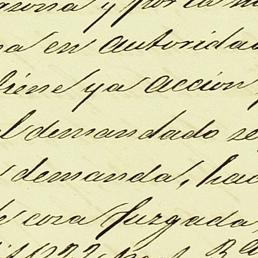 y por la
en autoridad
tiene ya accion
el demandado se
demanda, hac
cosa Juzgada